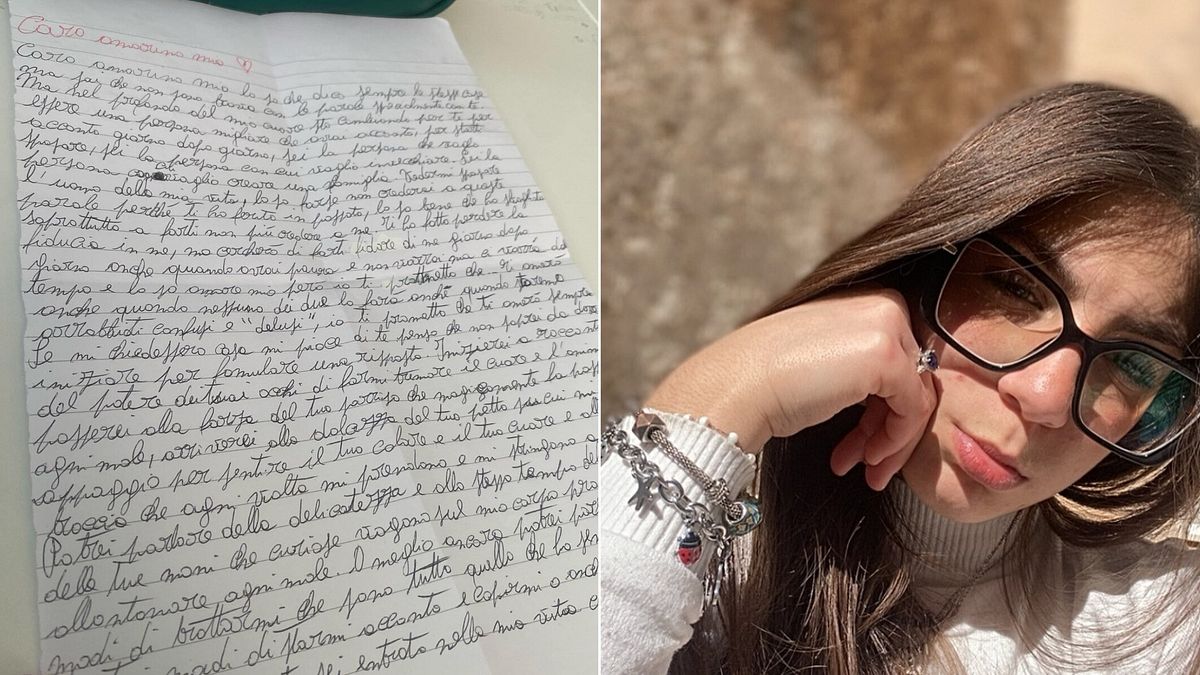 Caro amoruno mio
Caro amoruno mio lo so che dico sempre le stesse cose
ma sai che non sono brava con le parole specialmente con te.
Ma nel profondo del mio cuore sto cambiando per te per
essere una persona migliore che avrai accanto, per starti
accanto giorno dopo giorno, sei la persona che voglio
sposare, sei la persona con cui voglio invecchiare. Sei la
persona voglio creare una famiglia. Vedermi
l'uomo della mia vita, lo so forse non crederai a queste
parole perché ti ho ferito in passato, lo so bene che ho sbagliato
soprattutto a farti non più credere a me. Ti ho fatto perdere la
fiducia in me, ma cercherò di farti fidare di me giorno dopo
giorno anche quando avrai paura e non vorrai ma ci vorrà del
tempo e lo so amore mio però io ti prometto che ti amerò
anche quando nessuno dei due lo farà anche quando saremo
arrabbiati confusi e "delusi", io ti prometto che ti amerò sempre
Se mi chiedessero cosa mi piace di te penso che non saprei da dove
iniziare per formulare una risposta. Inizierei a raccont
del potere dei tuoi occhi di farmi tremare il cuore e l'anim
passerei alla forza del tuo sorriso che magicamente ha
ogni male, arriverei alla dolcezza del tuo petto su cui mi
appoggio per sentire il tuo calore e il tuo cuore e
braccia che ogni volta mi prendono e mi stringono
(Potrei parlare della delicatezza e allo stesso tempo de
delle tue mani che curiose vagano sul mio corpo
allontanare ogni male. O meglio ancora potrei
modi di trattarmi che sono tutto quello che ho
modi di starmi accanto e capirmi
sei entrato nella mia vita e